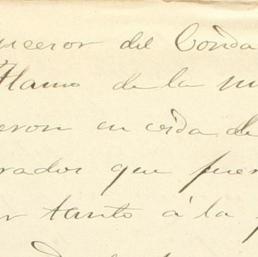 nceror del Conda
Hamo de la m
eron en cerda de
rados que fuer
or tanto á la p